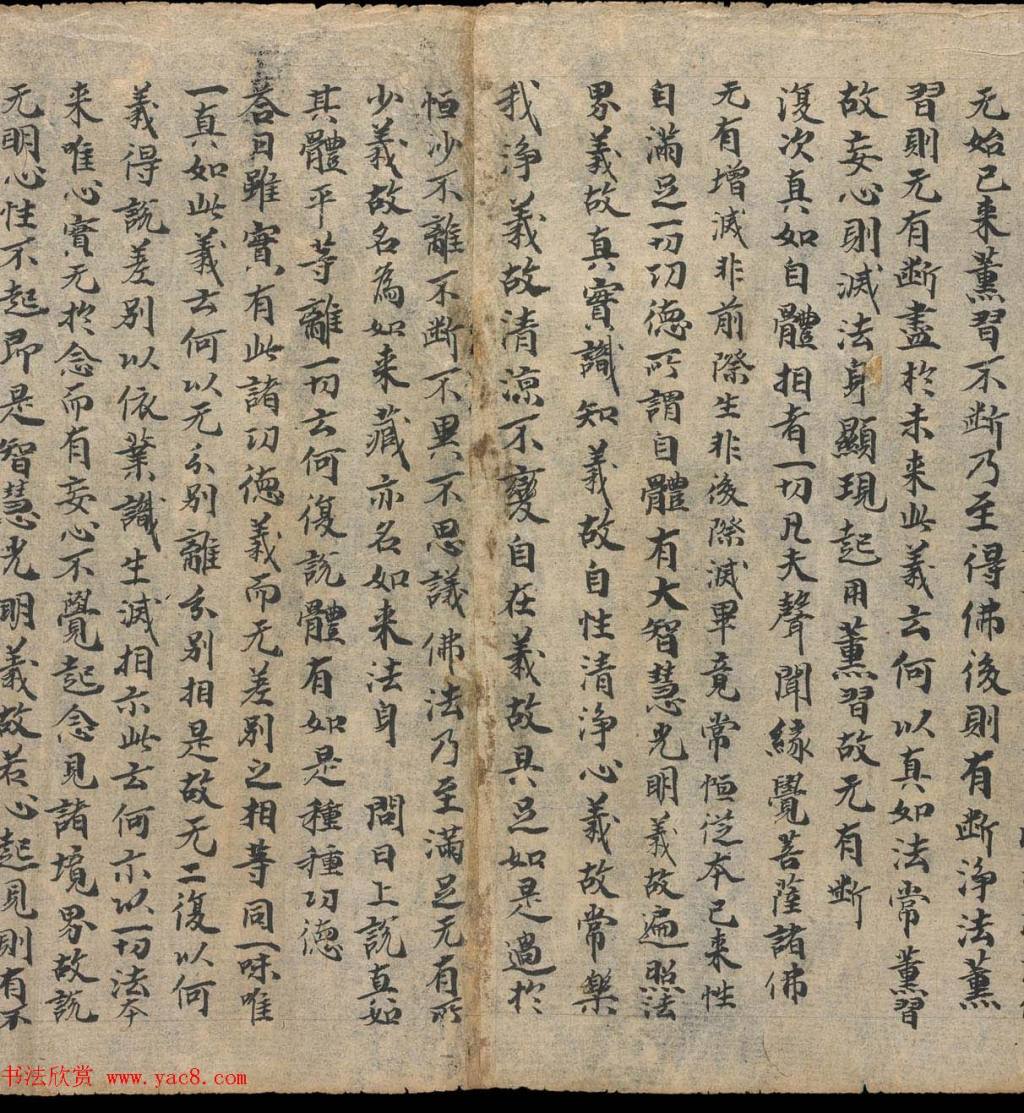 无始已来薰習不断乃至得佛後則有断浄法薰
習則无有断盡扵未来此義云何以真如法常薰習
故妄心則滅法身顯現起用薰習故无有断
復次真如自體相者一切凡夫聲聞緣覺菩薩諸佛
无有增減非前際生非後際滅畢竟常恒從本已来性
自滿足一切功德所謂自體有大智慧光明義故遍照法
界義故真實識知義故自性清浄心義故常樂
我浄義故清涼不變自在義故具足如是過扵
恒沙不離不断不異不思議佛法乃至滿足无有所
少義故名為如来藏亦名如来法身 問曰上說真如
其體平等離一切云何復說體有如是種種功德
荅曰雖實有此諸功德義而无差别之相等同一味唯
一真如此義云何以无分别離分别相是故无二復以何
義得說差别以依業識生滅相示此云何示以一切法本
来唯心實无扵念而有妄心不覺起念見諸境界故說
无明心性不起即是智慧光明義故若心起見則有不
书法欣赏 www.yac8.com